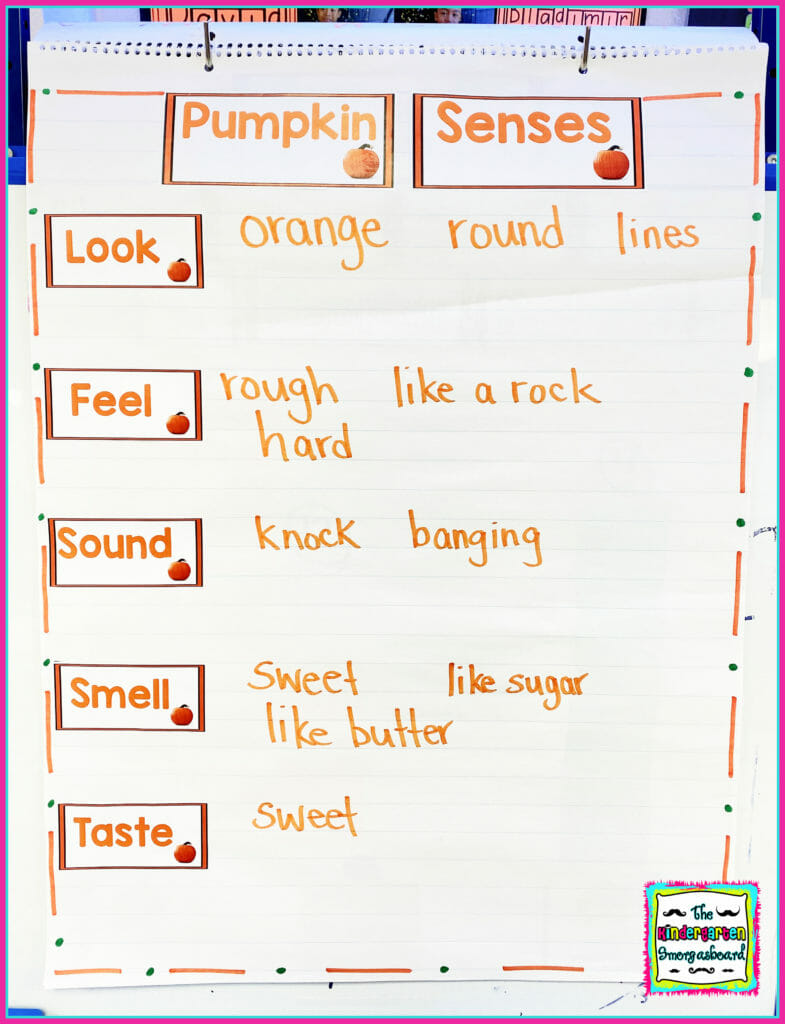 Devid Bladimir
Pumpkin Senses
Look orange round lines
Feel rough like a rock
hard
Sound knock banging
Smell sweet like sugar
like butter
Taste sweet
The
Kindergarten
Smorgasboard